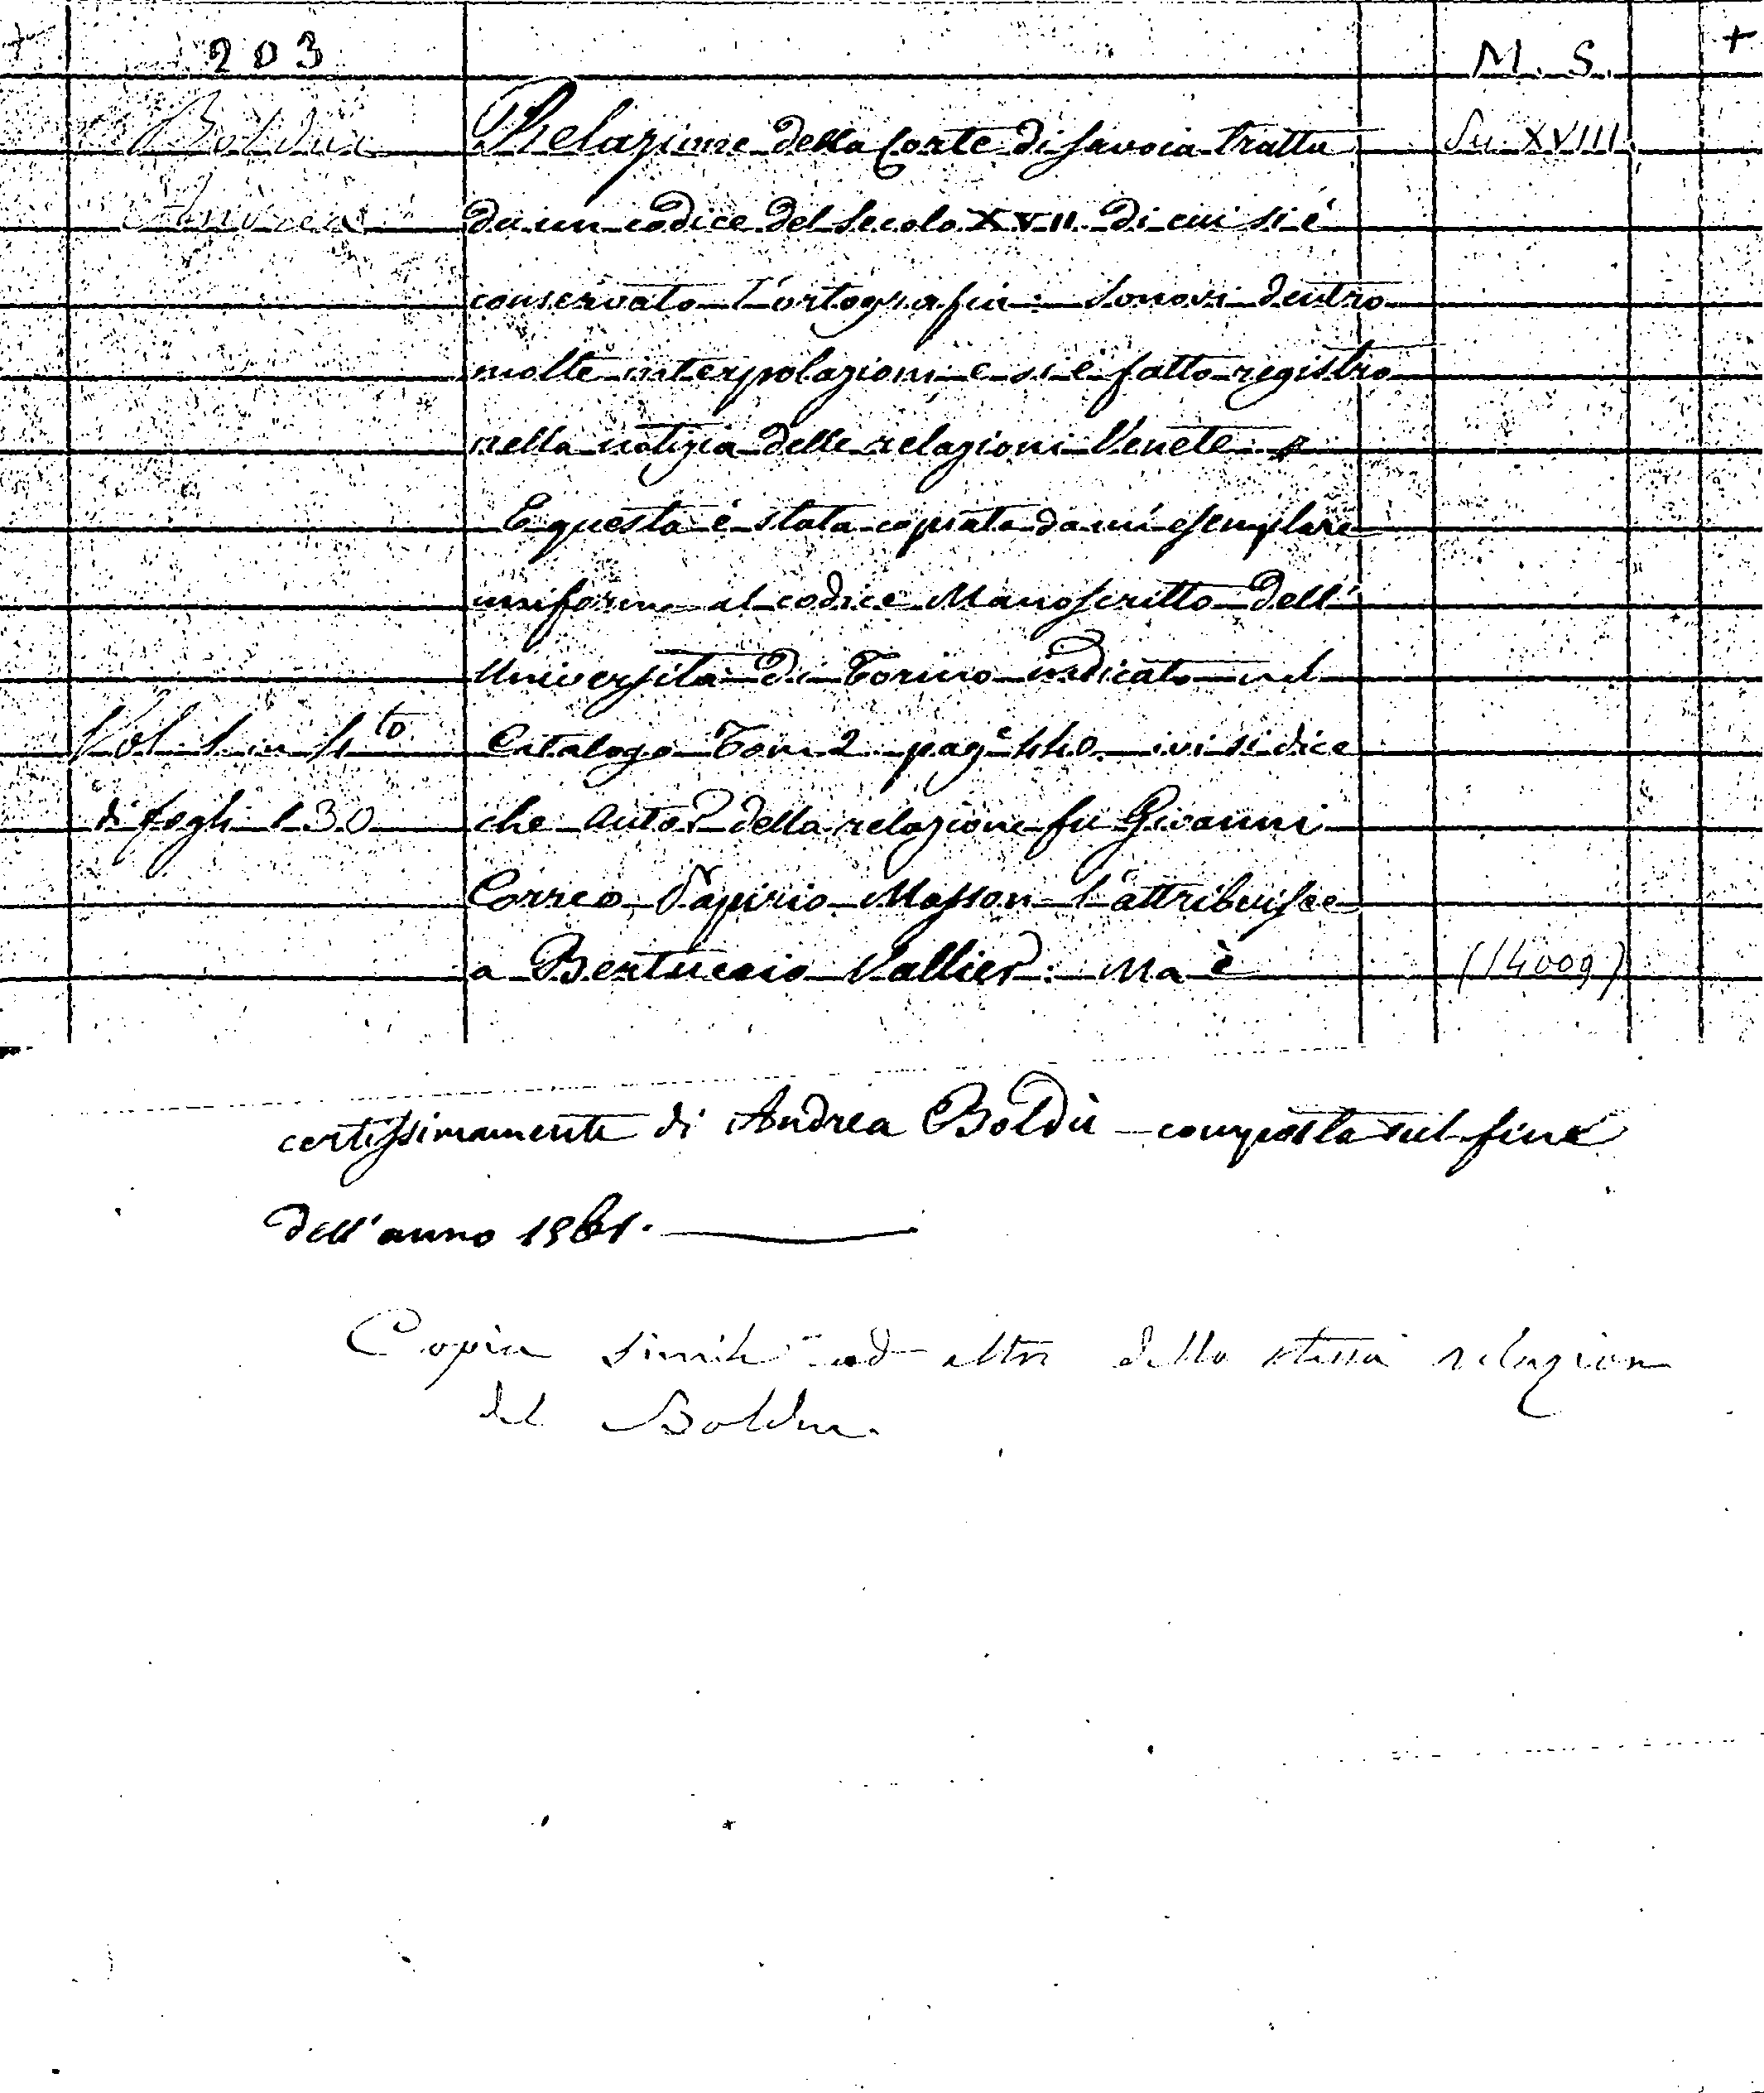 203 M. S. +
Boldu Relazione della Corte di Savoia tratta Sec. XVIII
Andrea da un codice del secolo XVII di cui si è
conservato l'ortografia: sonovi dentro
molte interpolazioni e si è fatto registro
nella notizia delle relazioni Venete.
E questa è stata copiata da un' esemplare
uniforme al codice Manoscritto dell'
Università di Torino indicato nel
Vol. 1 in 4to Catalogo Tom 2 page 440. ivi si dice
di fogli 130 che autor della relazione fu Giovanni
Correo, Papirio Masson l'attribuisce
a Bertuccio Vallier: Ma è (14009)
certissimamente di Andrea Boldù composta sul fine
dell'anno 1561.
Copia simile ad altra della stessa relazione
del Boldu.